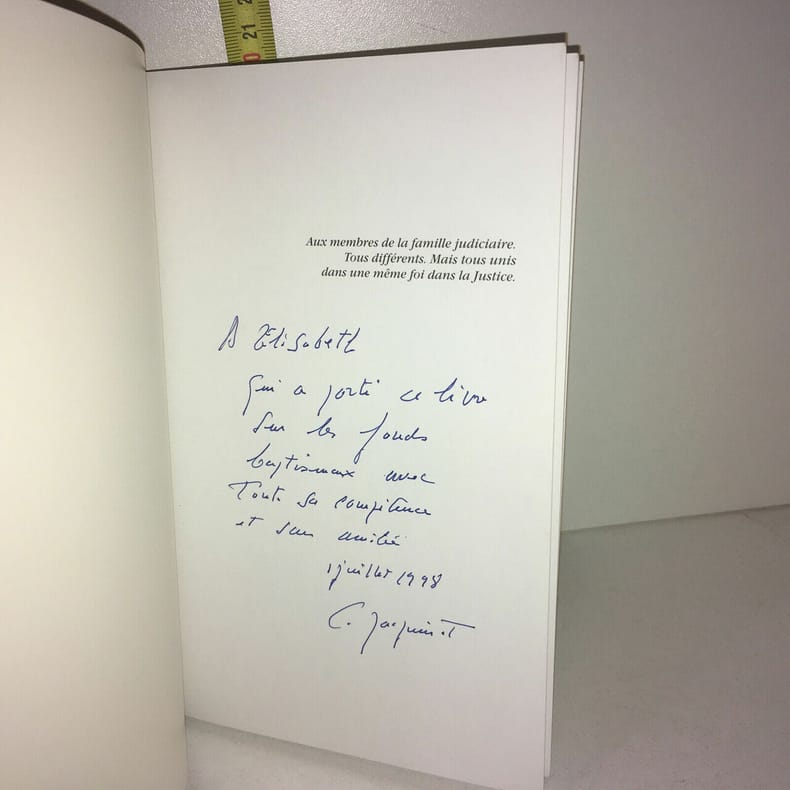 21
Aux membres de la famille judiciaire.
Tous différents. Mais tous unis
dans une même foi dans la Justice.
A Elisabeth
qui a porté ce livre
sur les fonds
baptismaux avec
toute sa compétence
et son amitié
1 juillet 1998
C. Jacquinot